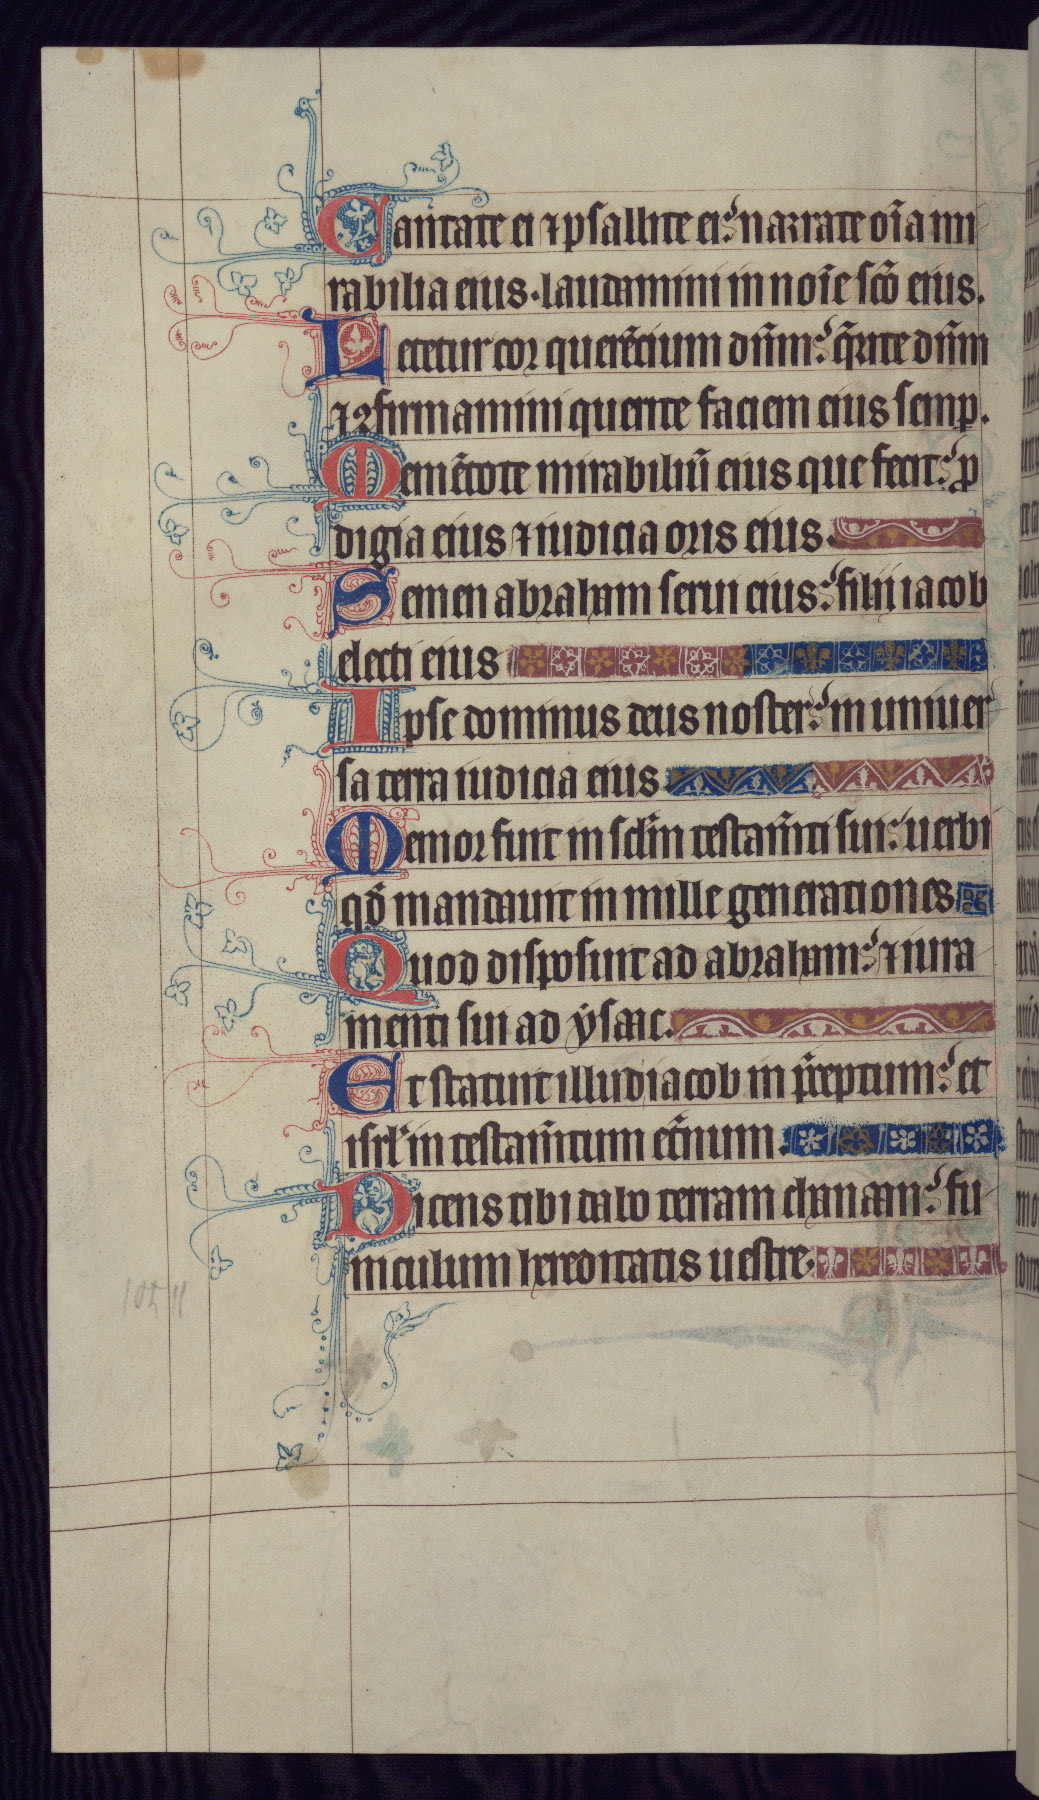 Cantate ei ⁊ psallite ei: narrate oīa mi
rabilia eius. laudamini in noīe scō eius.
Letetur cor querētium dn̄m: q̄rite dn̄m
⁊ ꝯfirmamini querite faciem eius semp.
Memētote mirabiliū eius que fecit: p
digia eius ⁊ iudicia oris eius.
Semen abraham serui eius: filii iacob
electi eius
Ipse dominus deus noster: in uniuer
sa terra iudicia eius
Memor fuit in sclm̄ testam̄ti sui: uerbi
qd̄ mandauit in mille generationes
Quod disposuit ad abraham: ⁊ iura
menti sui ad ẏsaac.
Et statuit illud iacob in p̄ceptum: et
isrl̓ in testam̄tum et̄num.
Dicens tibi dabo terram chanaan: fu
niculum hereditatis uestre.